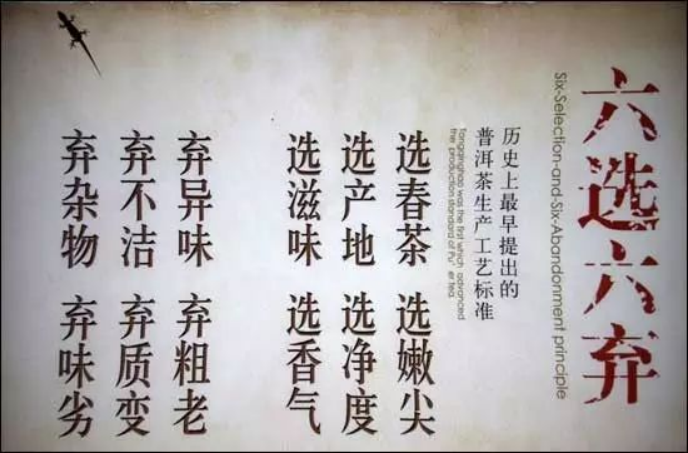 六选六弃
Six-Selection-and-Six-Abandonment principle
历史上最早提出的
普洱茶生产工艺标准
Tongqinghao was the first which advanced
the production standard of Pu'er tea
选春茶 选嫩尖
选产地 选净度
选滋味 选香气
弃异味 弃粗老
弃不洁 弃质变
弃杂物 弃味劣